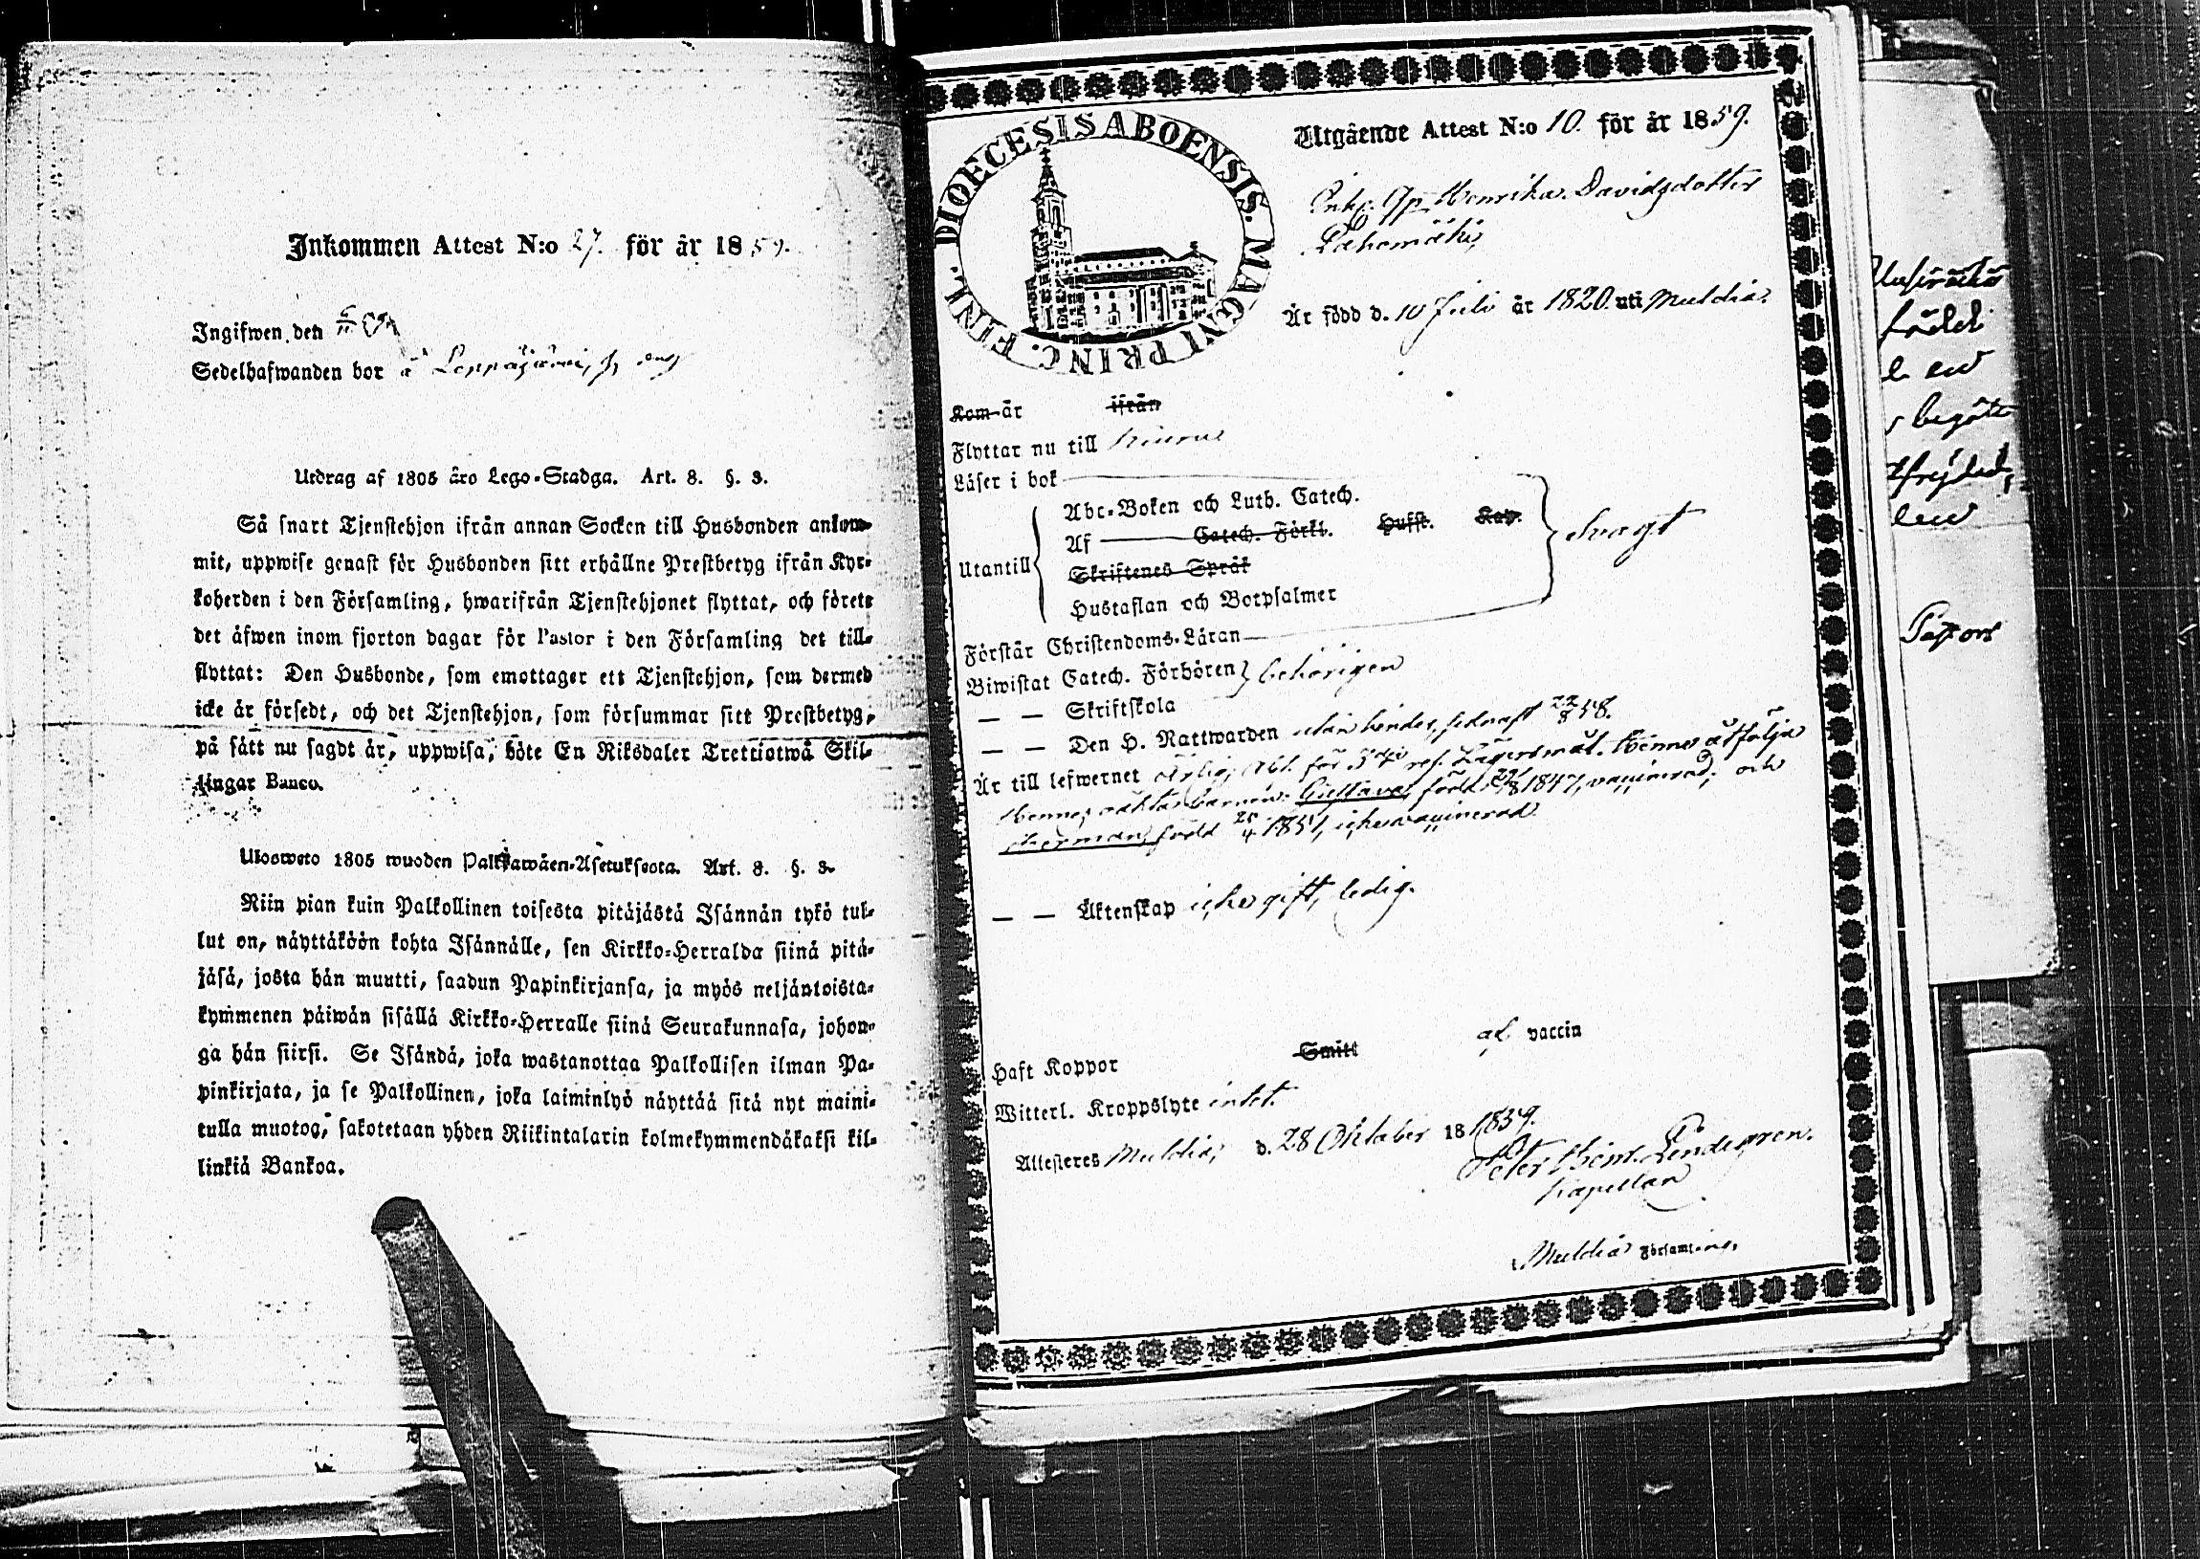 Inkommen Attest N:o 27. för år 1859.
Ingifwen den 6/11 59
Sedelhafwanden bor å Leppäjärvi,
Utdrag af 1805 års Lego-Stadga. Art. 8. §. 3.
Så snart Tjenstehjon ifrån annan Socken till Husbonden ankom-
mit, uppwise genast för Husbonden sitt erhållne Prestbetyg ifrån Kyr-
koherden i den Församling, hwarifrån Tjenstehjonet flyttat, och förete
det äfwen inom fjorton dagar för Pastor i den Församling det till-
flyttat: Den Husbonde, som emottager ett Tjenstehjon, som dermed
icke är försedt, och det Tjenstehjon, som försummar sitt Prestbetyg,
på sätt nu sagdt är, uppwisa, böte En Riksdaler Trettiotwå Skil-
lingar Banco.
Ulosweto 1805 wuoden Palkkawäen-Asetuksesta. Art. 8. §. 3.
Niin pian kuin Palkollinen toisesta pitäjästä Isännän tykö tul-
lut on, näyttäköön kohta Isännälle, sen Kirkko-Herralda siinä pitä-
jäsä, josta hän muutti, saadun Papinkirjansa, ja myös neljäntoista-
kymmenen päiwän sisällä Kirkko-Herralle siinä Seurakunnasa, johon-
ga hän siirsi. Se Isändä, joka wastanottaa Palkollisen ilman Pa-
pinkirjata, ja se Palkollinen, joka laiminlyö näyttää sitä nyt maini-
tulla muotoa, sakotetaan yhden Riikintalarin kolmekymmendäkaksi kil-
linkiä Bankoa.
DIOECESIS ABOENSIS. MAGNI PRINC. FINL.
Utgående Attest N:o 10. för år 1859.
Henrika Davidsdotter
Lahomäki,
Är född d. 10 Juli år 1820. uti Muldia.
Kom år ifrån
Flyttar nu till Kiuru
Läser i bok
Utantill
Abc-Boken och Luth. Catech.
Af Catech. Förkl. Hufst. Kap.
Skriftenes Språk
Hustaflan och Botpsalmer
Svagt
Förstår Christendoms-Läran
Biwistat Catech. Förhören behörigen
— — Skriftskola
— — Den H. Nattwarden utan hinder, sednast 22/8 58.
Är till lefwernet ärlig, Abs. för 3dje res. Lägersmål. Henne åtfölja
Hennes oäkta barnen: Gustava, född 1847, vaccinerad, och
Herman, född 25/4 1851, icke vaccinerad.
— — Äktenskap icke gift, ledig.
Haft Koppor Smitt af vaccin
Witterl. Kroppslyte intet.
Attesteras Muldia, d. 28 Oktober 18 1859.
Peter Henr.
Kapellan
Muldia Församling.
född